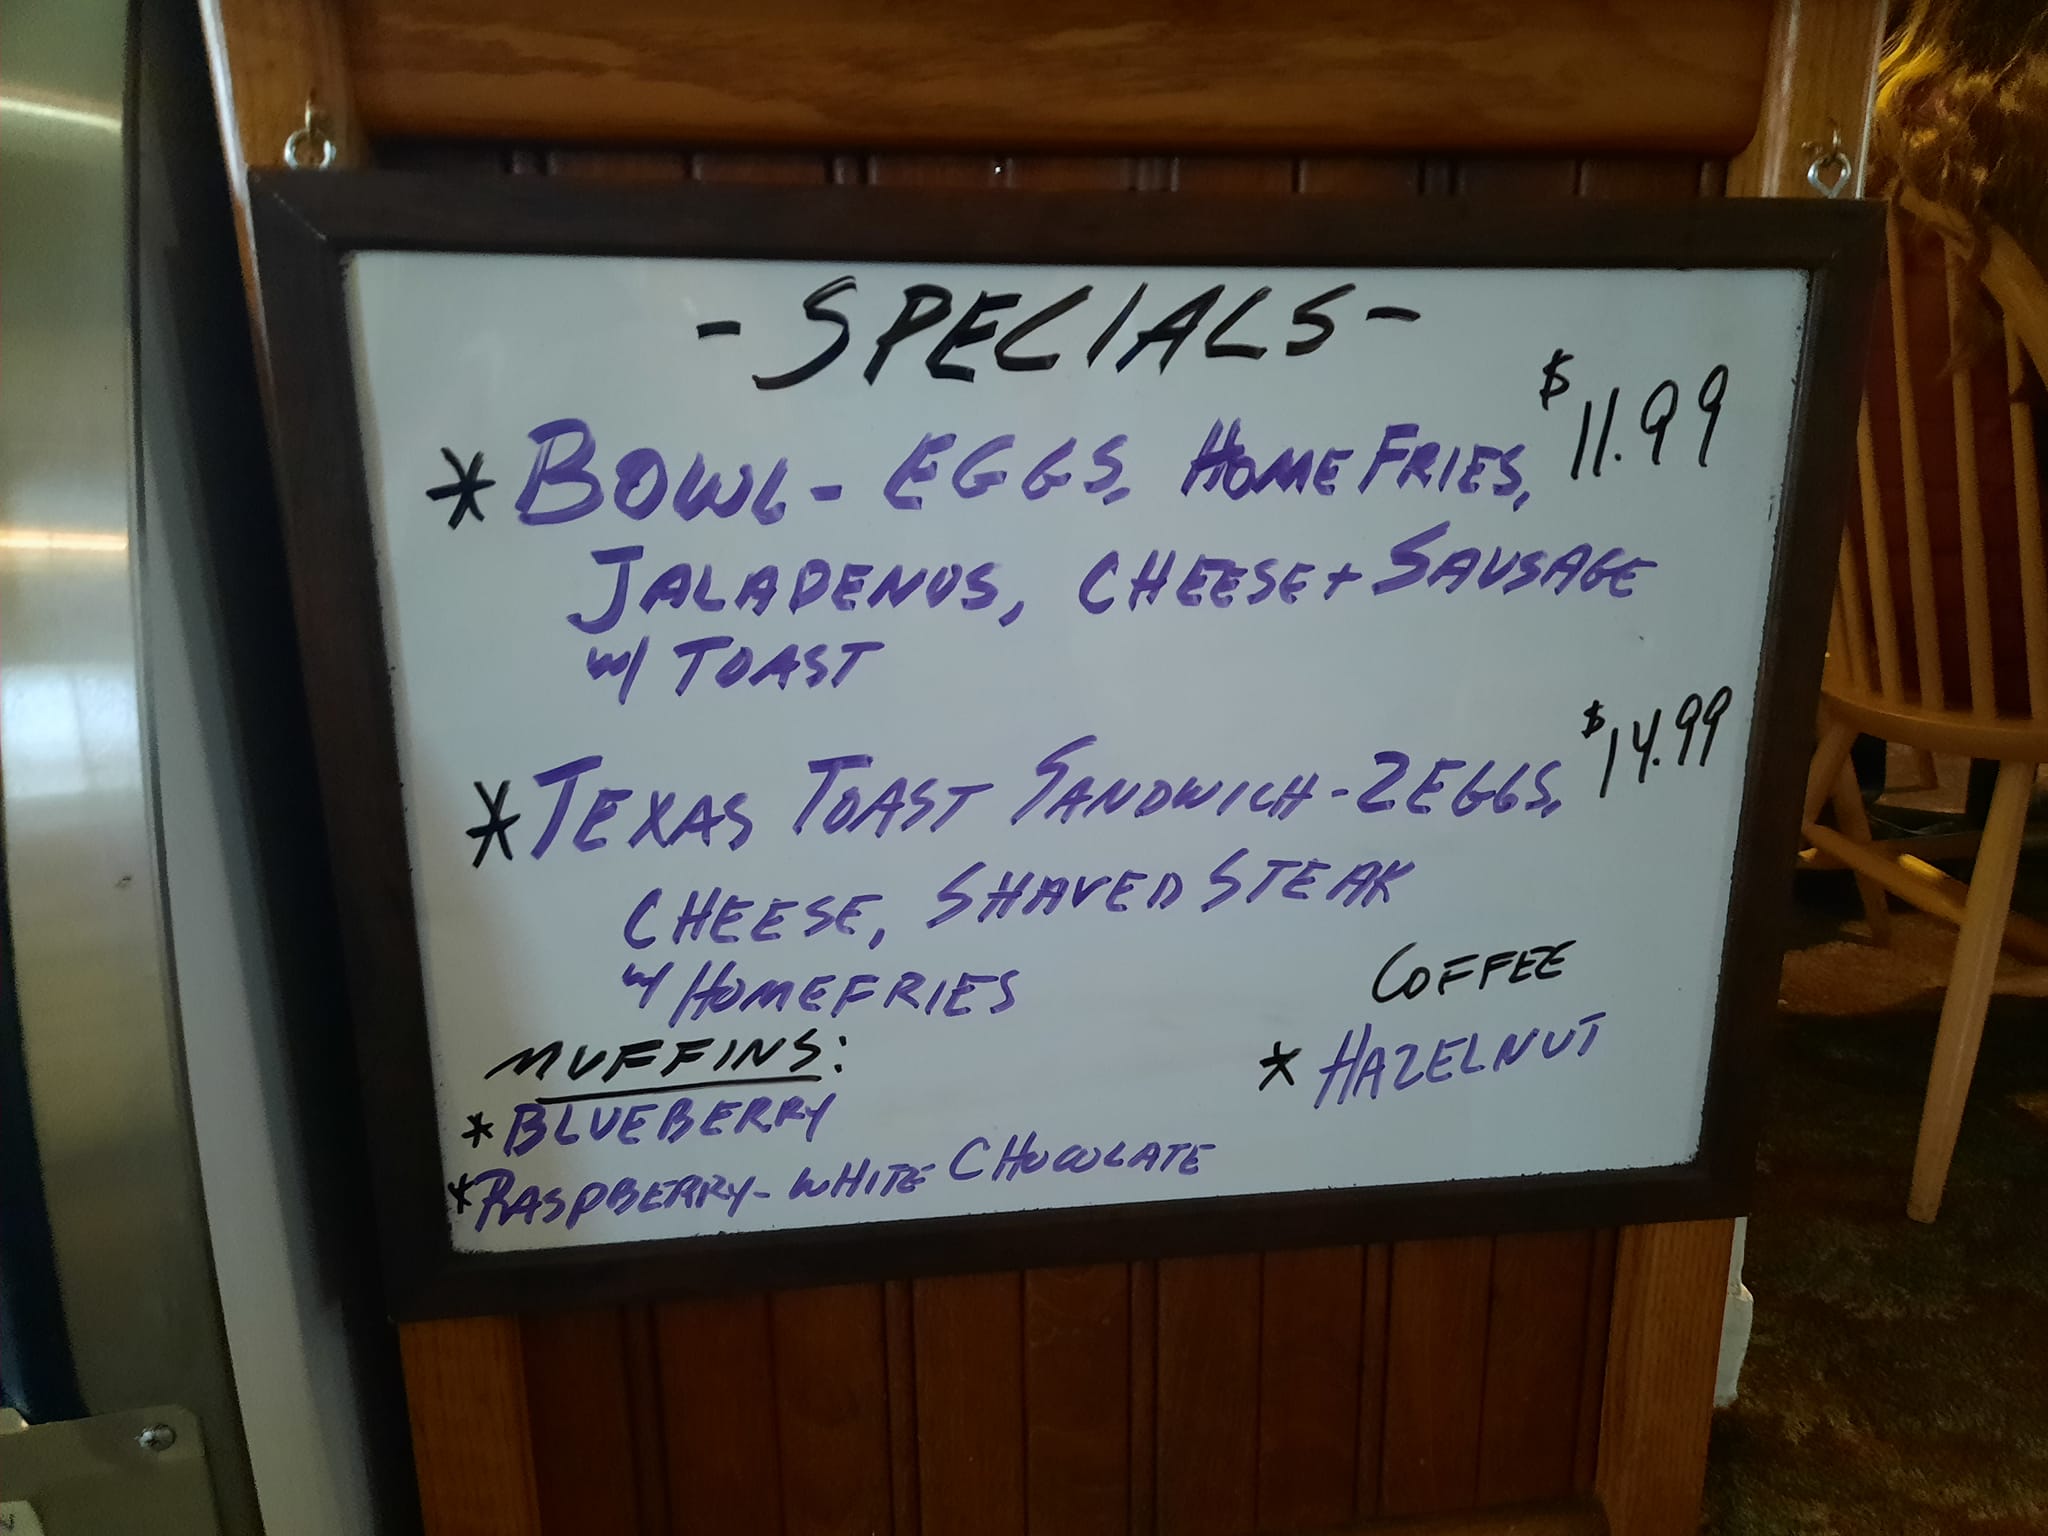 -SPECIALS-
* BOWL - EGGS, HOMEFRIES, $11.99
JALAPENOS, CHEESE + SAUSAGE
w/ TOAST
* TEXAS TOAST SANDWICH - 2 EGGS, $14.99
CHEESE, SHAVED STEAK
w/ HOMEFRIES
COFFEE
* HAZELNUT
MUFFINS:
* BLUEBERRY
* RASPBERRY - WHITE CHOCOLATE